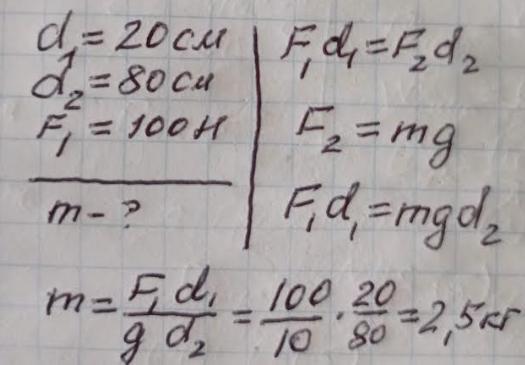 d₁ = 20 см
d₂ = 80 см
F₁ = 100 Н
m - ?
F₁d₁ = F₂d₂
F₂ = mg
F₁d₁ = mgd₂
m = F₁d₁ / g d₂ = 100/10 · 20/80 = 2,5 кг